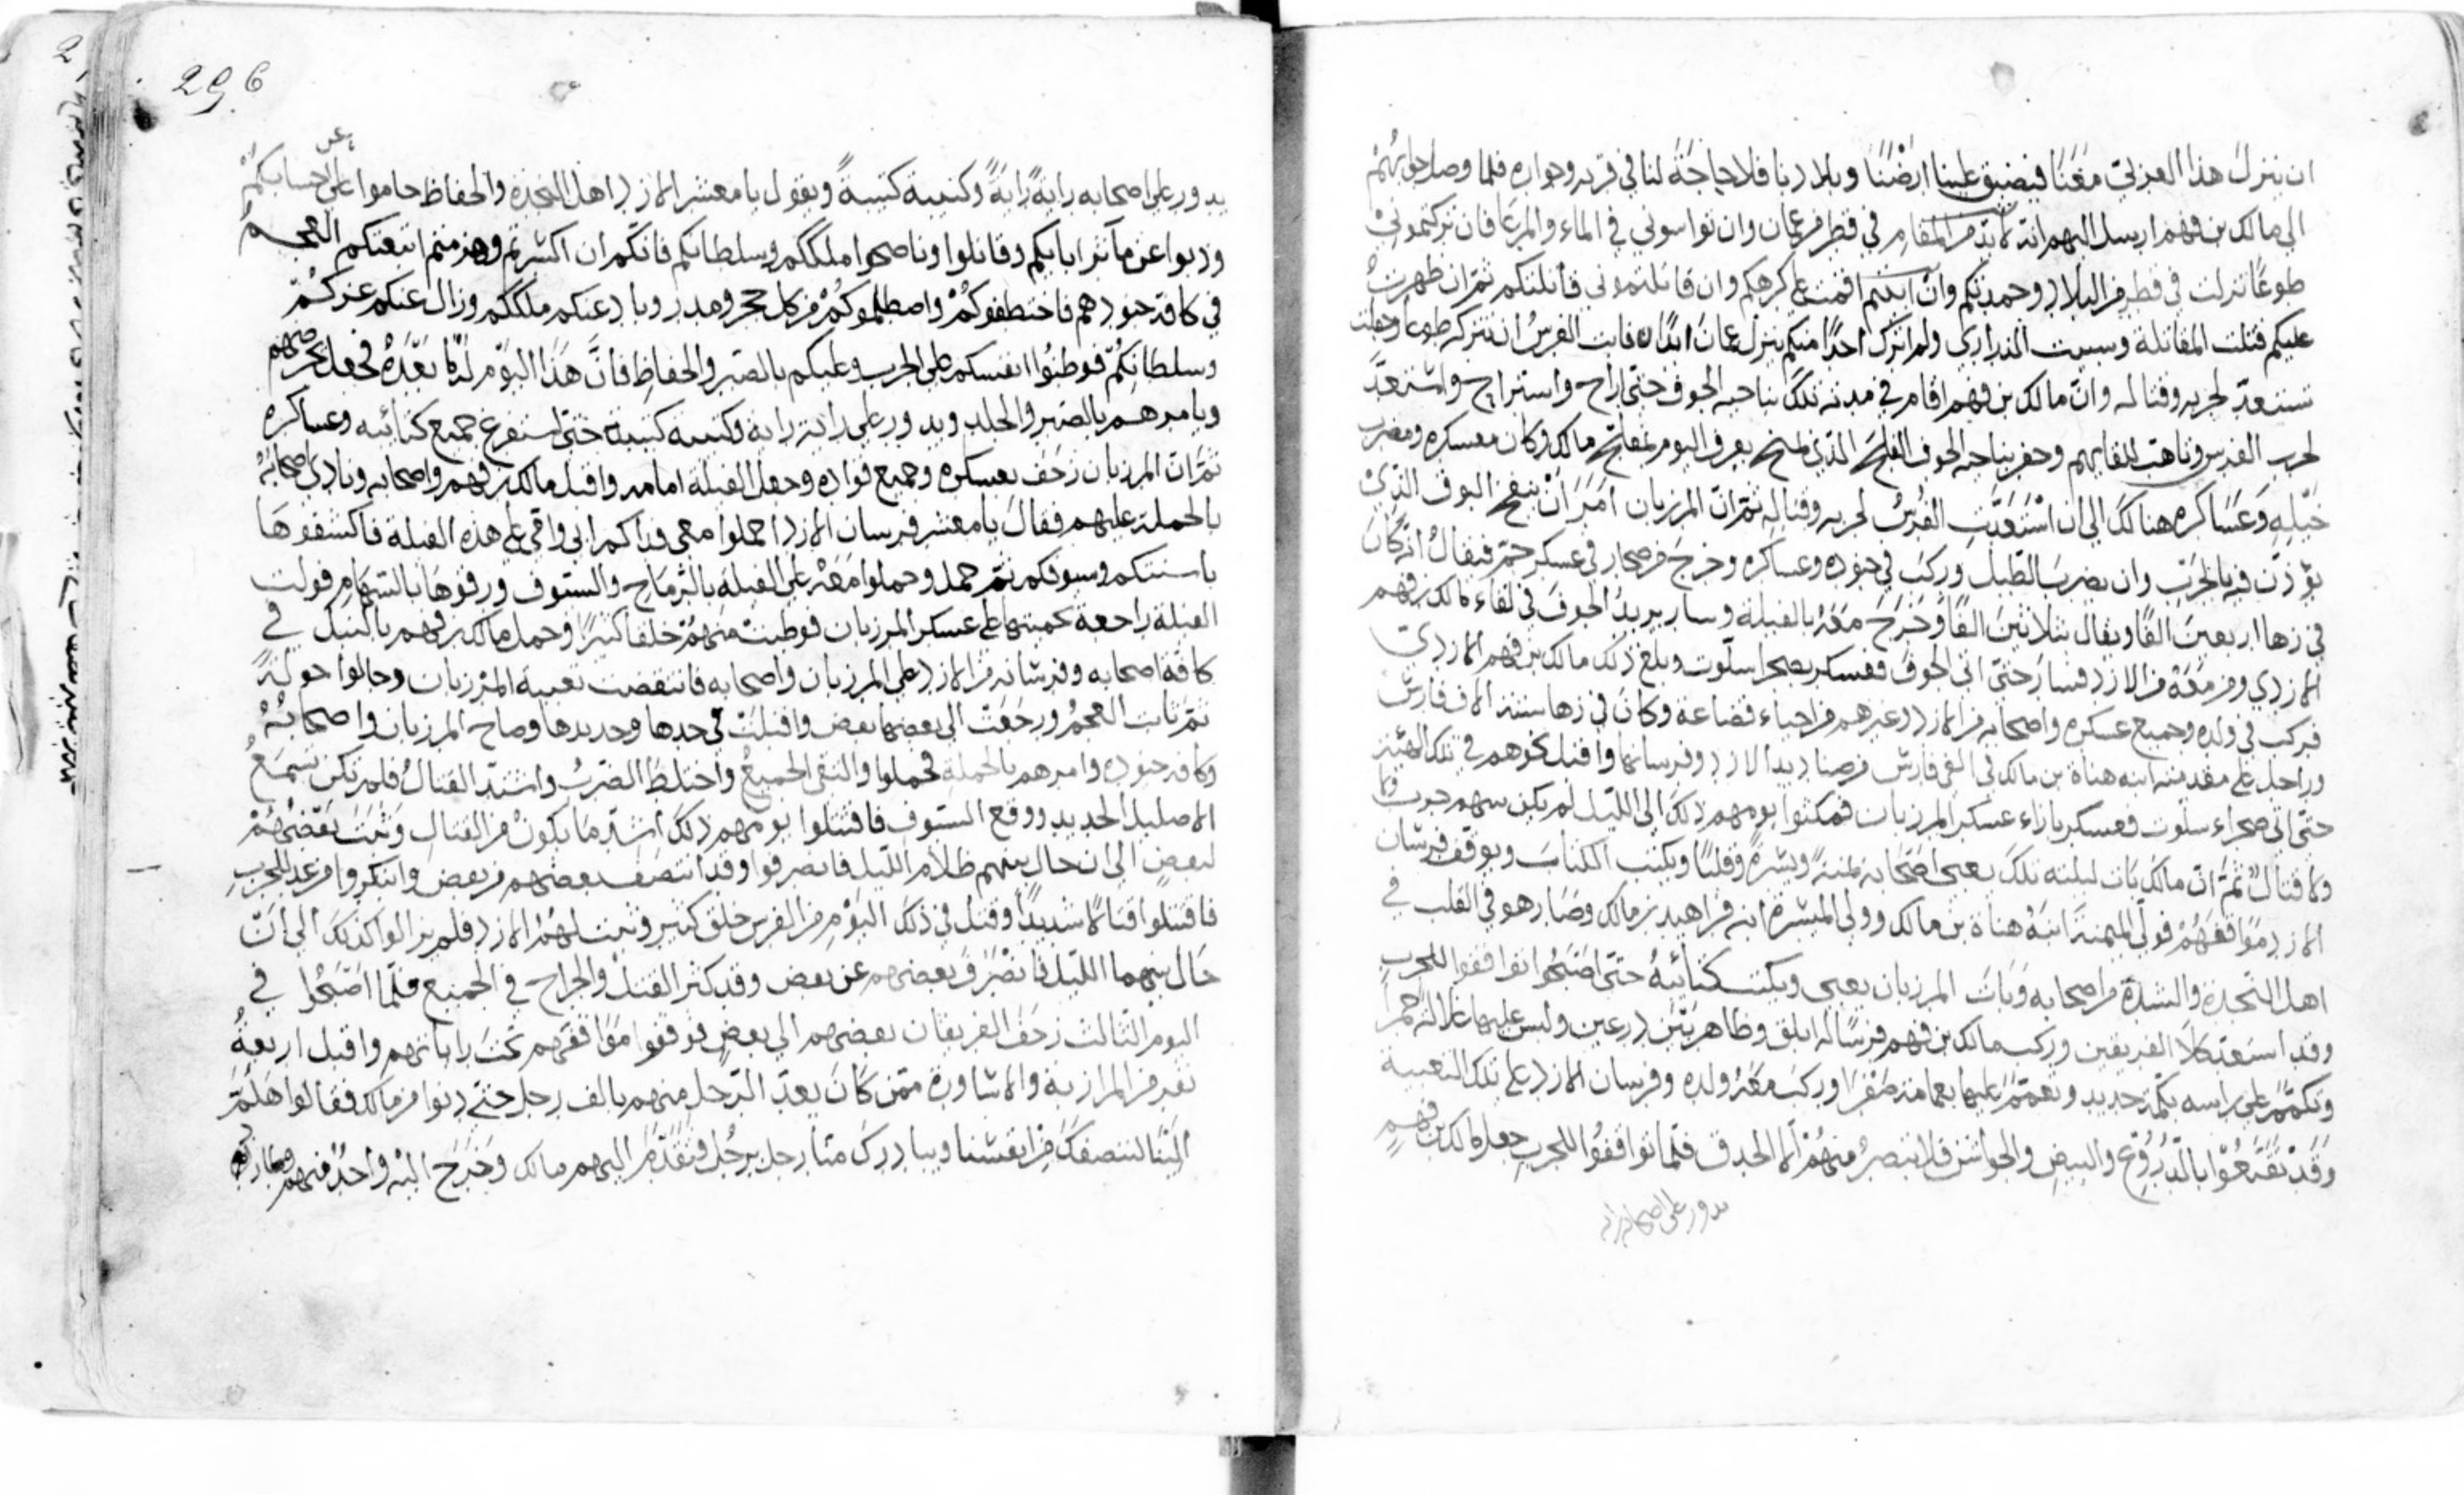 ان ينزل هذا العربي معنا فيضيق علينا ارضنا وبلادنا فلا حاجة لنا في قربه وجواره فلما وصل جوابهم
الى مالك بن فهم ارسل اليهم انه لابد من المقام في قطر من عمان وان تواسوني في الماء والمرعا فان تركتموني
طوعًا نزلت في قطر من البلاد وحمدتكم وان ابيتم اقمت على كرهكم وان قاتلتموني قاتلتكم ثم ان ظهرت
عليكم قتلت المقاتلة وسبيت الذراري ولم اترك احدًا منكم ينزل عمان ابدًا فابت الفرس ان تتركه طوعًا وجعلت
تستعد لحربه وقتاله وان مالك بن فهم اقام في مدته تلك بناحية الجوف حتى اراح واستراح واستعد
لحرب الفرس وتاهب للقايهم وحفر بناحية الجوف الفلج الذي بمنح يعرف اليوم بفلج مالك وكان معسكره ومضرب
خيله وعساكره هنالك الى ان استعدت الفرس لحربه وقتاله ثم ان المرزبان امر ان ينفخ البوق الذي
يؤذن فيه بالحرب وان يضرب الطبل وركب في جنوده وعساكره وخرج من صحار في عسكر جم فيقال انه كان
في زها اربعين الفًا ويقال ثلاثين الفًا وخرج معه بالفيلة وسار يريد الجوف في لقاء مالك بن فهم
الازدي ومن معه من الازد فسار حتى اتى الجوف فعسكر بصحرا سلوت وبلغ ذلك مالك بن فهم الازدي
فركب في ولده وجميع عسكره واصحابه من الازد وغيرهم من احياء قضاعة وكان في زها ستة الاف فارس
وراجل على مقدمته ابنه هناة بن مالك في الفي فارس من صناديد الازد وفرسانها واقبل نحوهم في تلك الهيئة
حتى اتى صحراء سلوت فعسكر بازاء عسكر المرزبان فمكثوا يومهم ذلك الى الليل لم يكن بينهم حرب
ولا قتال ثم ان مالك بات ليلته تلك يعبي اصحابه يمنة ويسرة وقلبًا ويكتب الكتاب ويوقف فرسان
الازد مواقفهم فولى الميمنة ابنه هناة بن مالك وولى الميسرة ابنه فراهيد بن مالك وصار هو في القلب في
اهل النجدة والشدة من اصحابه وبات المرزبان يعبي ويكتب كتائبه حتى اصبحوا تواقفوا للحرب
وقد استعد كلا الفريقين وركب مالك بن فهم فرسًا له ابلق وظاهر بين درعين ولبس عليها غلالة حمرا
وتكمم على راسه بكمة حديد وتعمم عليها بعمامة صفرا وركب معه ولده وفرسان الازد على تلك التعبية
وقد تقنعوا بالدروع والبيض والجواشن فلا يبصر منهم الا الحدق فلما تواقفوا للحرب جعل مالك بن فهم
يدور على اصحابه راية
296
يدور على اصحابه رايةً رايةً وكتيبة كتيبةً ويقول يا معشر الازد اهل النجدة والحفاظ حاموا على احسابكم
عن
وذبوا عن مآثر ابايكم وقاتلوا وناصحوا ملككم وسلطانكم فانكم ان انكسرتم وهزمتم اتبعتكم العجم
في كافة جنودهم فاختطفوكم واصطلموكم من كل حجر ومدر وباد عنكم ملككم وزال عنكم عزكم
وسلطانكم فوطنوا انفسكم على الحرب وعليكم بالصبر والحفاظ فان هذا اليوم له ما بعده فجعل يحرضهم
ويامرهم بالصبر والجلد ويدور على راية راية وكتيبة كتيبة حتى استفرغ جميع كتائبه وعساكره
ثم ان المرزبان زحف بعسكره وجميع قواده وجعل الفيلة امامه واقبل مالك بن فهم واصحابه ونادى اصحابه
بالحملة عليهم فقال يا معشر فرسان الازد احملوا معي فداكم ابي وامي على هذه الفيلة فاكشفوها
باسنتكم وسيوفكم ثم حمل وحملوا معه على الفيلة بالرماح والسيوف ورشقوها بالسهام فولت
الفيلة راجعة بحميتها على عسكر المرزبان فوطيت منهم خلقا كثيرًا وحمل مالك بن فهم بالنبل في
كافة اصحابه وفرسانه من الازد على المرزبان واصحابه فانتقضت تعبية المرزبان وجالوا جولة
ثم ثابت العجم ورجعت الى بعضها بعض واقبلت في حدها وحديدها وصاح المرزبان واصحابه
وكافة جنوده وامرهم بالحملة فحملوا والتقى الجميع واختلط الضرب واشتد القتال فلم تكن تسمع
الا صليل الحديد ووقع السيوف فاقتتلوا يومهم ذلك اشد ما يكون من القتال وثبت بعضهم
لبعض الى ان حال بينهم ظلام الليل فانصرفوا وقد انتصف بعضهم من بعض وابتكروا من غد للحرب
فاقتتلوا قتالا شديدًا وقتل في ذلك اليوم من الفرس خلق كثير وثبت لهم الازد فلم يزالوا كذلك الى ان
حال بينهما الليل فانصرف بعضهم عن بعض وقد كثر القتل والجراح في الجميع فلما اصبحوا في
اليوم الثالث زحف الفريقان بعضهم الى بعض فوقفوا مواقفهم تحت راياتهم واقبل اربعة
نفر من المرازبة والاساورة ممن كان يعد الرجل منهم بالف رجل حتى دنوا من مالك فقالوا هلم
الينا لننصفك من انفسنا ويبادرك منا رجل برجل فتقدم اليهم مالك وخرج اليه واحد منهم